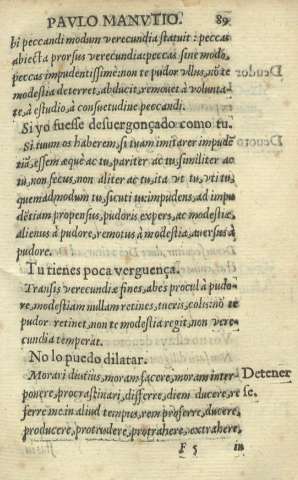 PAVLO MANVTIO. 89
bi peccandi modum verecundia statuit: peccas
abiecta prorsus verecundia: peccas sine modo,
peccas impudentissimè: non te pudor vllus, nō te
modestia deterret, abducit, remouet à volunta-
te, à studio, à consuetudine peccandi.
Si yo fuesse desuergonçado como tu.
Si tuum os haberem, si tuam imitarer impudē
tiā, essem aequè ac tu, pariter ac tu, similiter ac
tu, non secus, non aliter ac tu, ita vt tu, vti tu,
quemadmodum tu, sicuti tu: impudens, ad impu
dētiam propensus, pudoris expers, ac modestiæ,
alienus à pudore, remotus à modestia, auersus à
pudore.
Tu tienes poca verguença.
Transis verecundiæ fines, abes procul à pudo-
re, modestiam nullam retines, tueris, colis: nō te
pudor retinet, non te modestia regit, non vere-
cundia temperat.
No lo puedo dilatar.
Morari diutius, moram facere, moram inter
ponere, procrastinari, differre, diem ducere, re
ferre me in aliud tempus, rem proferre, ducere,
producere, protrudere, protrahere, extrahere,
Detener
se.
F 5 in